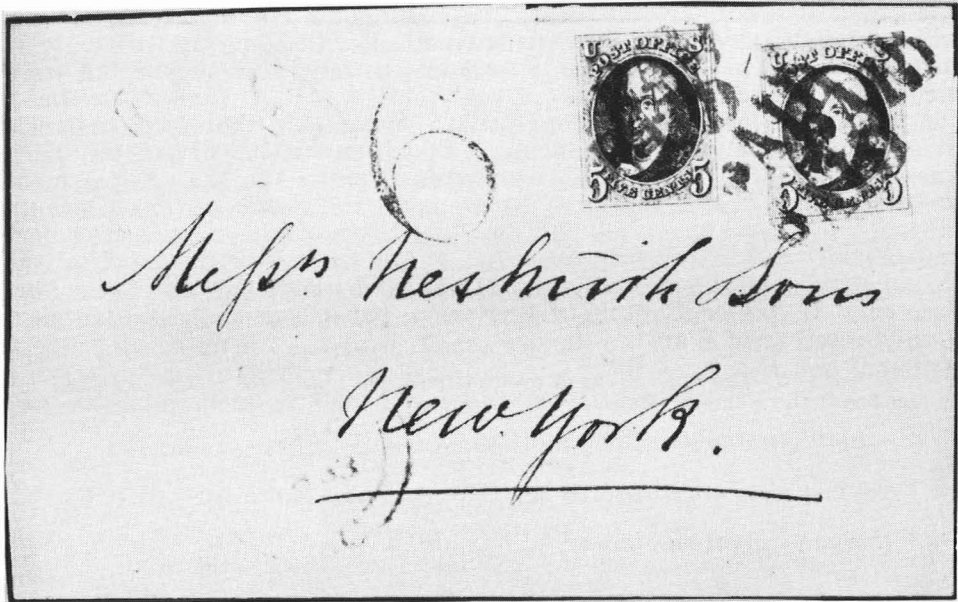 U POST OFFICE S
FIVE CENTS
5 5
U POST OFFICE S
FIVE CENTS
5 5
6
Messrs Nesmith Sons
New York.